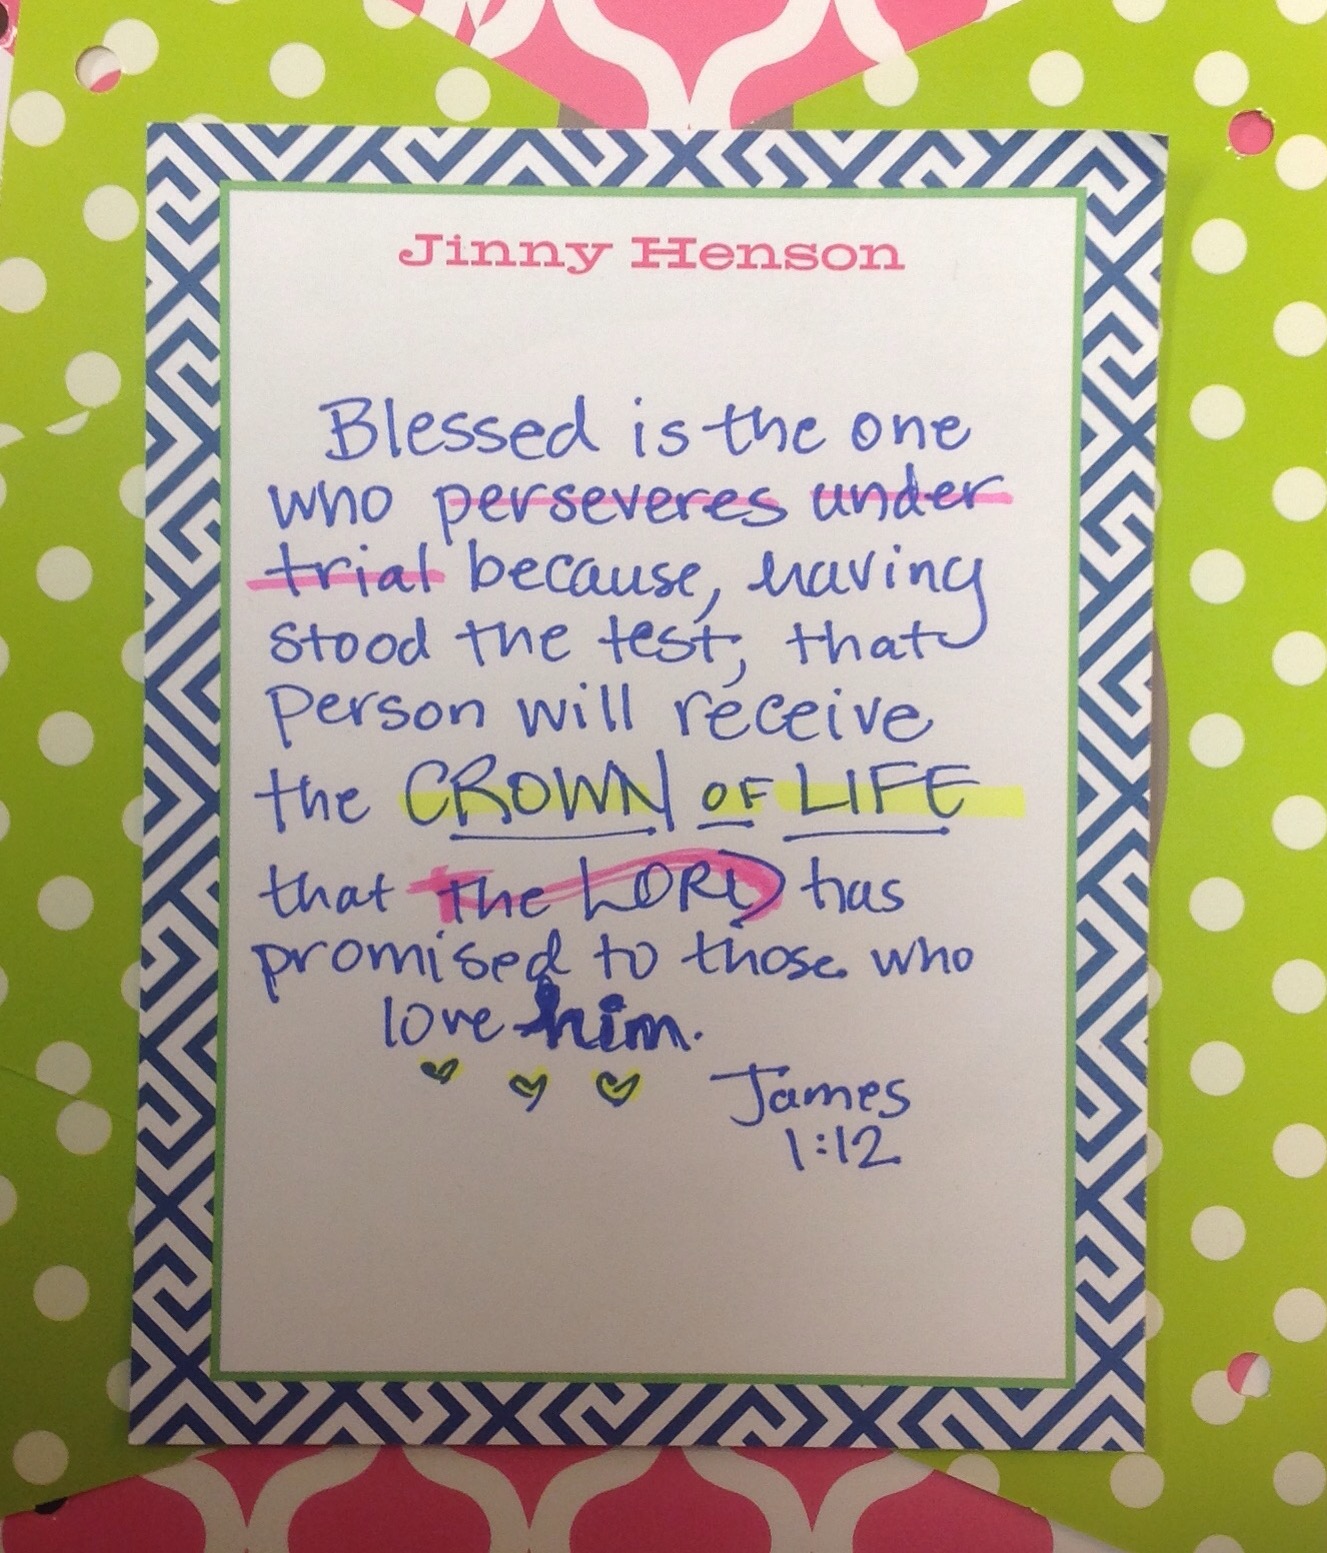 Jinny Henson
Blessed is the one
who perseveres under
trial because, having
stood the test, that
person will receive
the CROWN OF LIFE
that the LORD has
promised to those who
love him.
James
1:12